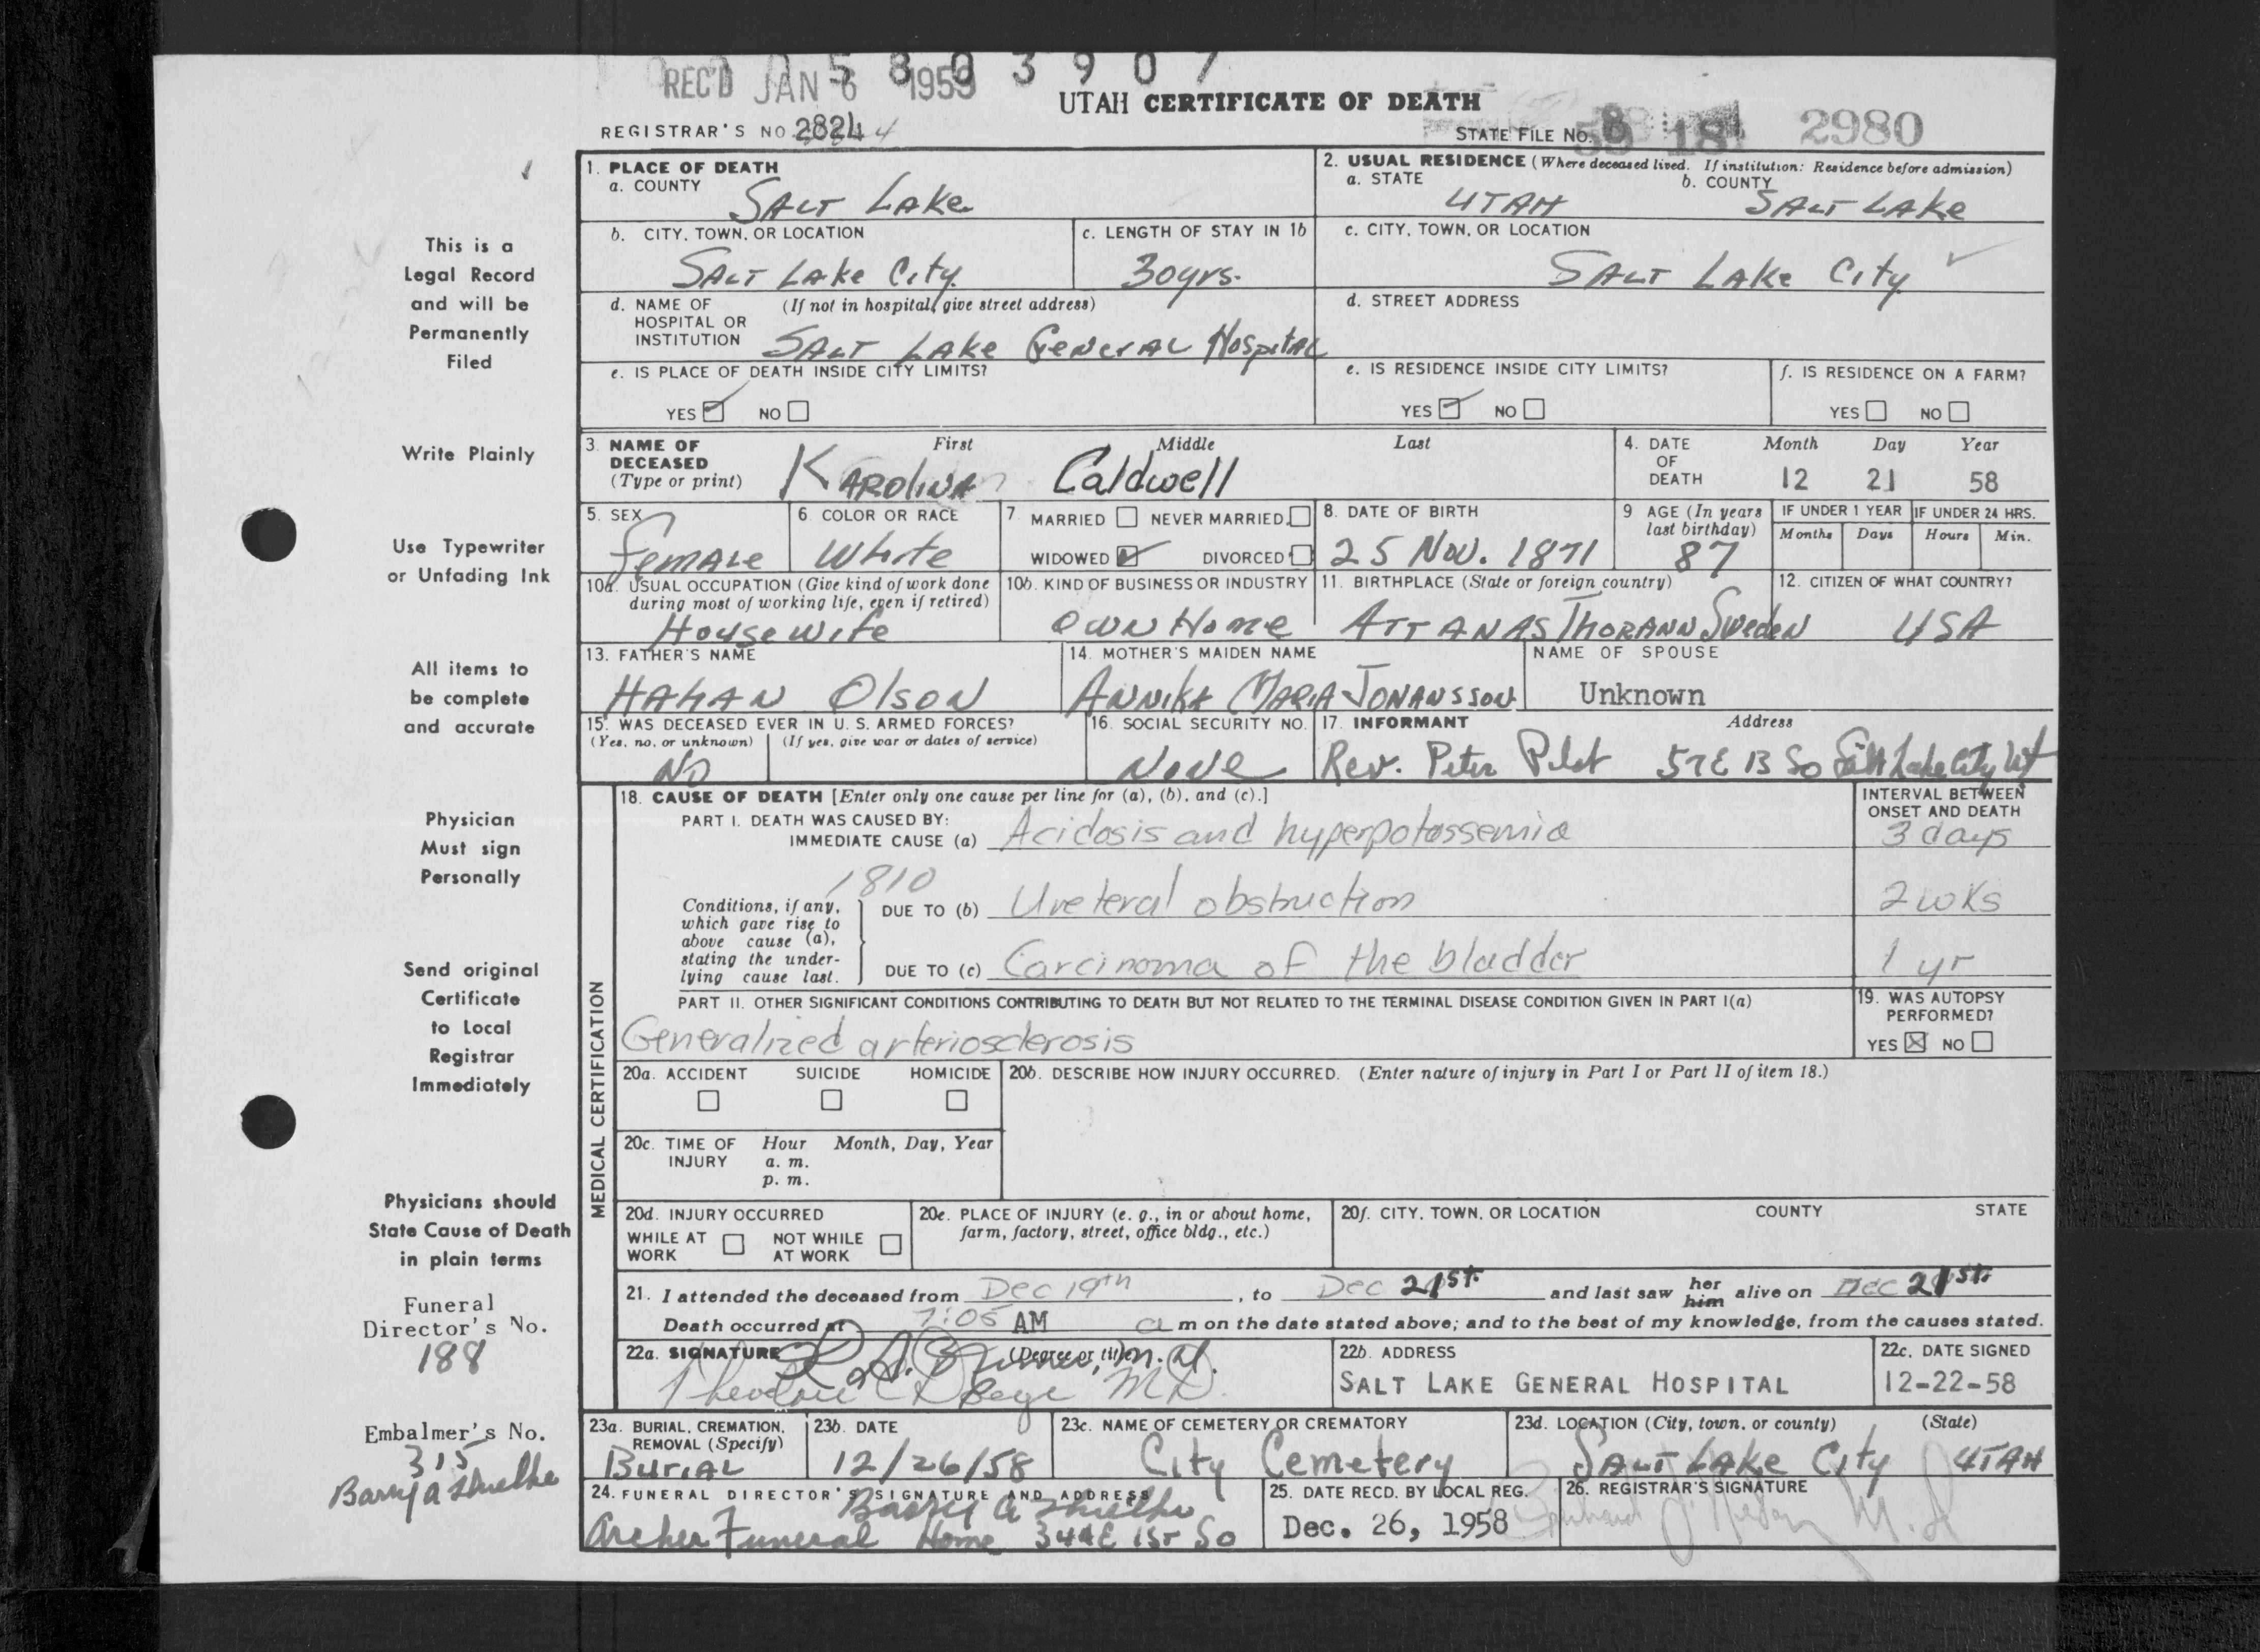 REC'D JAN 6 1959
5 8 0 3 9 0 7
UTAH CERTIFICATE OF DEATH
REGISTRAR'S NO. 2824
STATE FILE NO. 18 2980
1. PLACE OF DEATH
a. COUNTY
SALT LAKE
2. USUAL RESIDENCE (Where deceased lived. If institution: Residence before admission)
a. STATE
UTAH
b. COUNTY
SALT LAKE
b. CITY, TOWN, OR LOCATION
SALT LAKE City
c. LENGTH OF STAY IN 1b
30yrs.
c. CITY, TOWN, OR LOCATION
SALT LAKE City
d. NAME OF (If not in hospital, give street address)
HOSPITAL OR
INSTITUTION
SALT LAKE GENERAL HospitAL
d. STREET ADDRESS
e. IS PLACE OF DEATH INSIDE CITY LIMITS?
YES NO
e. IS RESIDENCE INSIDE CITY LIMITS?
YES NO
f. IS RESIDENCE ON A FARM?
YES NO
3. NAME OF
DECEASED
(Type or print)
First Middle Last
KAROLINA Caldwell
4. DATE
OF
DEATH
Month Day Year
12 21 58
5. SEX
FEMALE
6. COLOR OR RACE
White
7. MARRIED NEVER MARRIED
WIDOWED DIVORCED
8. DATE OF BIRTH
25 Nov. 1871
9 AGE (In years
last birthday)
87
IF UNDER 1 YEAR
Months Days
IF UNDER 24 HRS.
Hours Min.
10a. USUAL OCCUPATION (Give kind of work done
during most of working life, even if retired)
HouseWife
10b. KIND OF BUSINESS OR INDUSTRY
OWN Home
11. BIRTHPLACE (State or foreign country)
ATTANAS THORANN Sweden
12. CITIZEN OF WHAT COUNTRY?
USA
13. FATHER'S NAME
HAHAN Olson
14. MOTHER'S MAIDEN NAME
ANNIKA MARIA JONANSSON
NAME OF SPOUSE
Unknown
15. WAS DECEASED EVER IN U. S. ARMED FORCES?
(Yes, no, or unknown) (If yes, give war or dates of service)
NO
16. SOCIAL SECURITY NO.
None
17. INFORMANT Address
Rev. Peter Pilot 57 E 13 So Salt Lake City Ut
MEDICAL CERTIFICATION
18. CAUSE OF DEATH [Enter only one cause per line for (a), (b), and (c).]
PART I. DEATH WAS CAUSED BY:
IMMEDIATE CAUSE (a) Acidosis and hyperpotassemia
INTERVAL BETWEEN
ONSET AND DEATH
3 days
1810
Conditions, if any,
which gave rise to
above cause (a),
stating the under-
lying cause last.
DUE TO (b) Ureteral obstruction
2 wks
DUE TO (c) Carcinoma of the bladder
1 yr
PART II. OTHER SIGNIFICANT CONDITIONS CONTRIBUTING TO DEATH BUT NOT RELATED TO THE TERMINAL DISEASE CONDITION GIVEN IN PART I(a)
Generalized arteriosclerosis
19. WAS AUTOPSY
PERFORMED?
YES NO
20a. ACCIDENT SUICIDE HOMICIDE
20b. DESCRIBE HOW INJURY OCCURRED. (Enter nature of injury in Part I or Part II of item 18.)
20c. TIME OF Hour Month, Day, Year
INJURY a. m.
p. m.
20d. INJURY OCCURRED
WHILE AT NOT WHILE
WORK AT WORK
20e. PLACE OF INJURY (e. g., in or about home,
farm, factory, street, office bldg., etc.)
20f. CITY, TOWN, OR LOCATION COUNTY STATE
21. I attended the deceased from Dec 19th, to Dec 21st and last saw her him alive on Dec 21st
Death occurred at 7:05 AM a m on the date stated above; and to the best of my knowledge, from the causes stated.
22a. SIGNATURE (Degree or title) M.D.
Theodore M.D.
22b. ADDRESS
SALT LAKE GENERAL HOSPITAL
22c. DATE SIGNED
12-22-58
23a. BURIAL, CREMATION,
REMOVAL (Specify)
BURIAL
23b. DATE
12/26/58
23c. NAME OF CEMETERY OR CREMATORY
City Cemetery
23d. LOCATION (City, town, or county) (State)
SALT LAKE City UTAH
24. FUNERAL DIRECTOR'S SIGNATURE AND ADDRESS
Archer Funeral Home 344 E 1st So
25. DATE RECD. BY LOCAL REG.
Dec. 26, 1958
26. REGISTRAR'S SIGNATURE
This is a
Legal Record
and will be
Permanently
Filed
Write Plainly
Use Typewriter
or Unfading Ink
All items to
be complete
and accurate
Physician
Must sign
Personally
Send original
Certificate
to Local
Registrar
Immediately
Physicians should
State Cause of Death
in plain terms
Funeral
Director's No.
188
Embalmer's No.
315